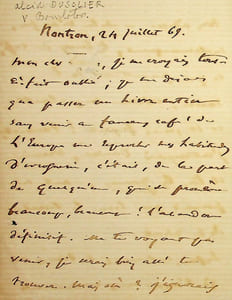 alcide DUSOLIER
v. Bourloton
Nontron, 24 juillet 69.
mon cher , je me croyais tout
à fait oublié ; je me disais
que passer un hiver entier
sans venir au fameux café de
L'Europe me reprocher mes habitudes
d', c'était, de la part
de quelqu'un, qui se promène
beaucoup, beaucoup ! l'abandon
définitif. Ne te voyant pas
venir, je serais bien allé te
trouver. Mais où ? j'ignorais